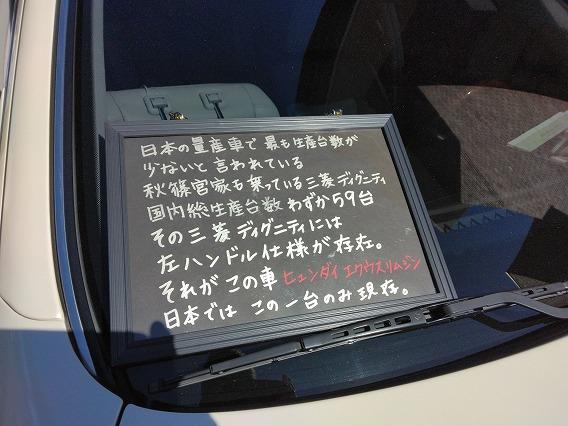 日本の量産車で 最も生産台数が
少ないと言われている
秋篠宮家も乗っている三菱ディグニティ
国内総生産台数 わずか59台
その三菱ディグニティには
左ハンドル仕様が存在。
それがこの車 ヒュンダイ エクウスリムジン
日本では この一台のみ現存。